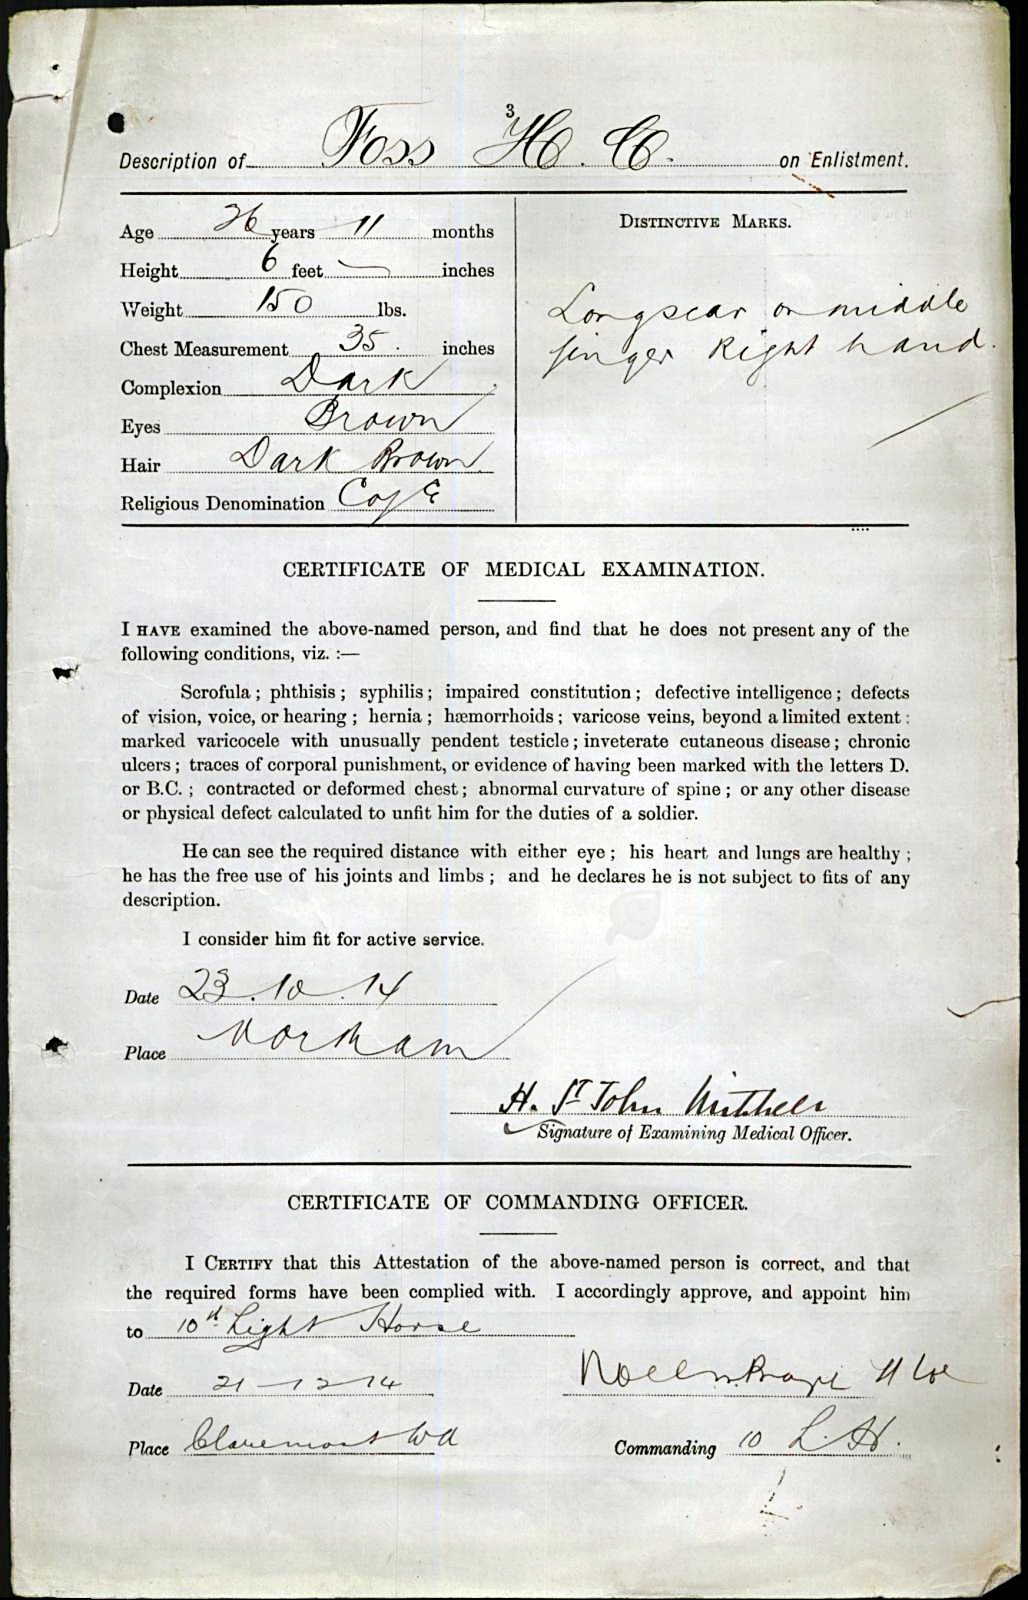 3
Description of Foss H. C. on Enlistment.
Age 26 years 11 months
Height 6 feet — inches
Weight 150 lbs.
Chest Measurement 35. inches
Complexion Dark
Eyes Brown
Hair Dark Brown
Religious Denomination C of E
DISTINCTIVE MARKS.
Long scar on middle
finger Right hand.
CERTIFICATE OF MEDICAL EXAMINATION.
I HAVE examined the above-named person, and find that he does not present any of the
following conditions, viz. :—
Scrofula ; phthisis ; syphilis ; impaired constitution ; defective intelligence ; defects
of vision, voice, or hearing ; hernia ; hæmorrhoids ; varicose veins, beyond a limited extent :
marked varicocele with unusually pendent testicle ; inveterate cutaneous disease ; chronic
ulcers ; traces of corporal punishment, or evidence of having been marked with the letters D.
or B.C. ; contracted or deformed chest ; abnormal curvature of spine ; or any other disease
or physical defect calculated to unfit him for the duties of a soldier.
He can see the required distance with either eye ; his heart and lungs are healthy ;
he has the free use of his joints and limbs ; and he declares he is not subject to fits of any
description.
I consider him fit for active service.
Date 23.10.14
Place Northam
H. St John Mitchell
Signature of Examining Medical Officer.
CERTIFICATE OF COMMANDING OFFICER.
I CERTIFY that this Attestation of the above-named person is correct, and that
the required forms have been complied with. I accordingly approve, and appoint him
to 10th Light Horse
Date 21-12-14
Noel
Place Claremont WA
Commanding 10 L.H.